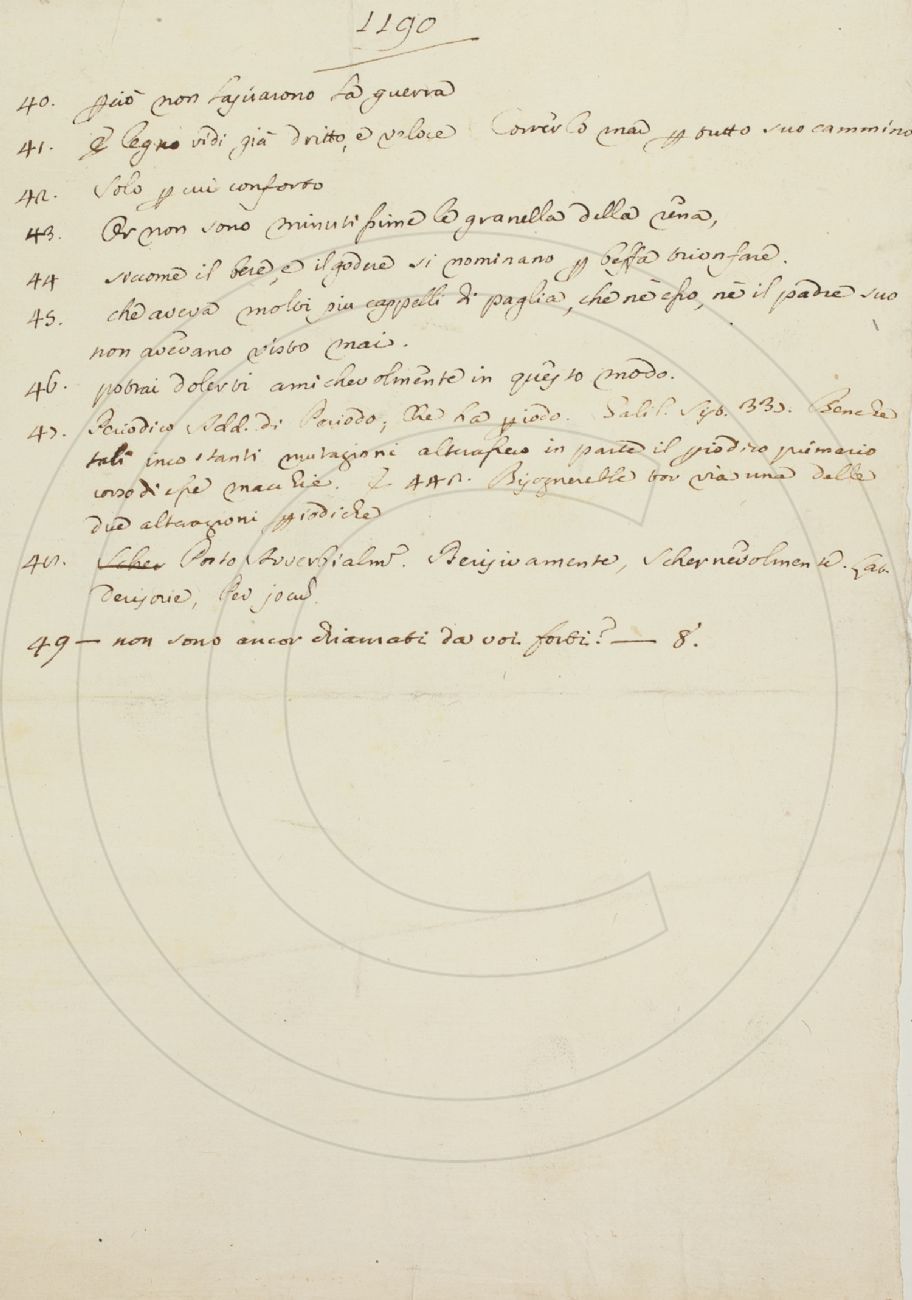 1190
40. ꝑciò non lasciarono la guerra
41. E legno vidi già dritto, e veloce Correr lo mar ꝑ tutto suo cammino
42. Solo ꝑ cui conforto
43. Or non sono minutissime le granella della rena,
44 siccome il bere, e il godere si nominano ꝑ beffa trionfare.
45. che aveva molti più cappelli di paglia, che nè esso, nè il padre suo
non avevano visto mai.
46. potrai dolerti amichevolmente in questo modo.
47. Periodico Add. di Periodo; Che ha ꝑiodo. Galil. Sist. 337. Benchè
tali incostanti mutazioni alterassero in parte il ꝑiodico primario
corso di esse macchie. E 442. Bisognerebbe tor via una delle
due alterazioni ꝑiodiche
48. Scher Posto Avverbialm. Derisivamente, Schernevolmente. Lat.
Derisorie, Per
49 — non sono ancor chiamati da voi forti? — 8.